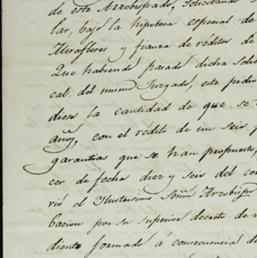 de este Arzobispado, solicitando
lar, bajo la hipoteca especial de
Miraflores y fianza de réditos de
Que habiendo pasado dicha soli
cal del mismo Juzgado, este pidio
diese la cantidad de que se
año, con el rédito de un seis p
garantias que se han propuesto,
cer de fecha diez y seis del cor
vió el Ilustrísimo Señor Arzobispo
bacion por su superior decreto de
diente formado á consecuencia de